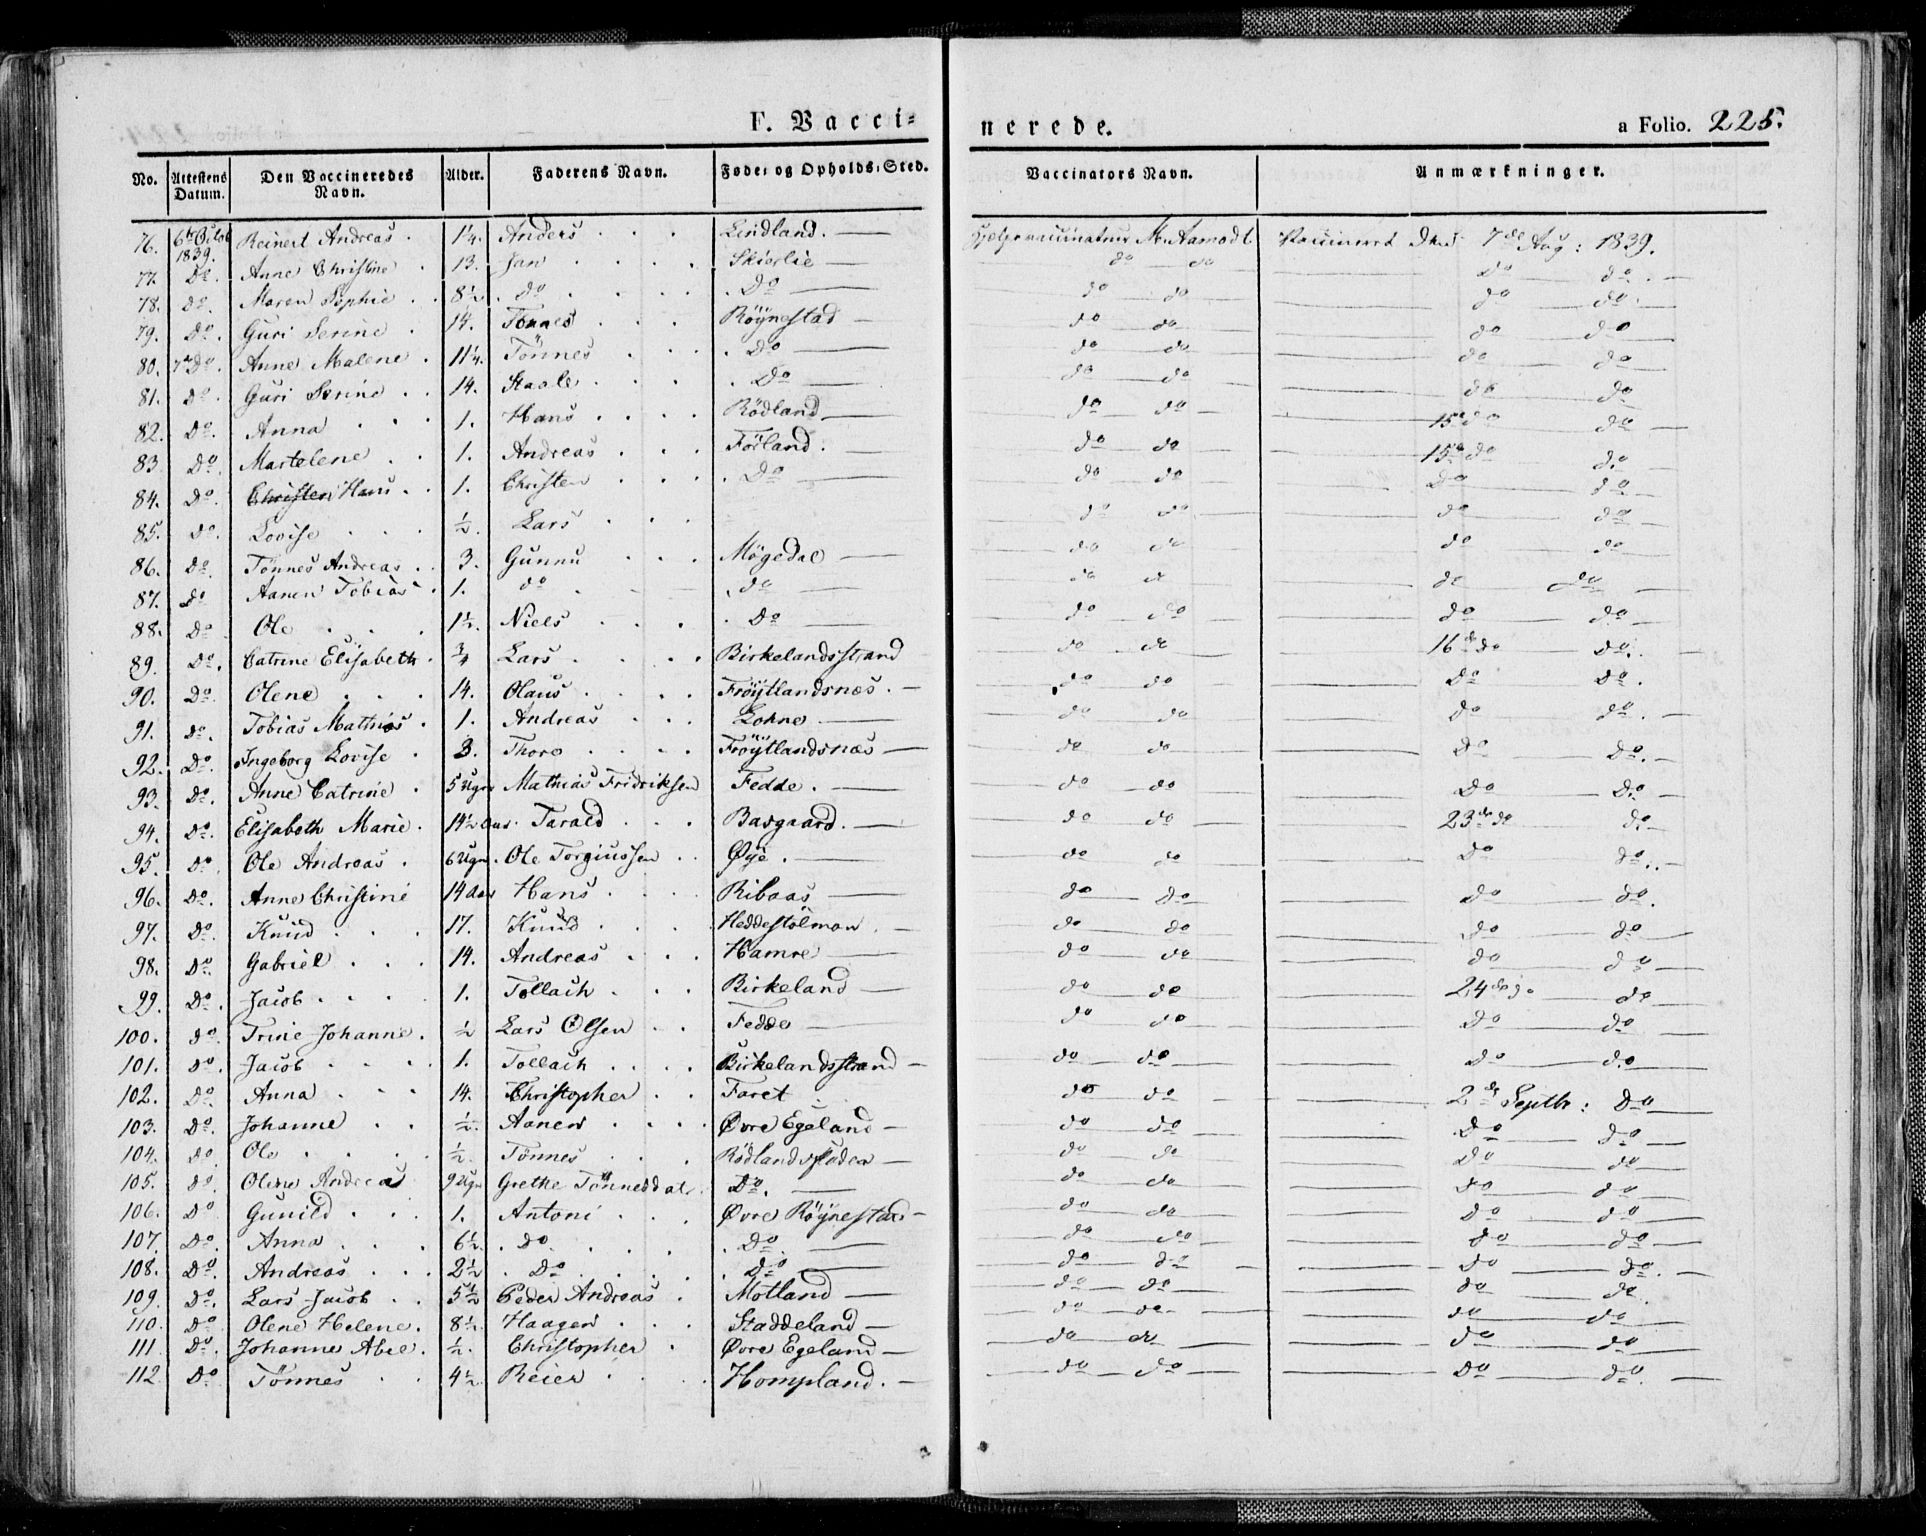 F. Vacci=
nerede.
a Folio. 225.
No. | Attestens Datum. | Den Vaccineredes Navn. | Alder. | Faderens Navn. | Føde- og Opholds-Sted. | Vaccinators Navn. | Anmærkninger.
76. | 6te Octob 1839. | Reinert Andreas. | 1/4. | Anders | Lindland. | Hjelpevaccinateur M. Aamodt | Vaccineret den 7de Aug: 1839.
77. | Do. | Anne Christine | 13. | Jan | Skierlie | do do | Do do.
78. | Do. | Maren Sophie | 8 1/2. | do | Do | do do | do do.
79. | Do. | Guri Serine | 14. | Tønnes | Röynestad | do do | do do
80. | 7de Do. | Anne Malene | 11 1/4. | Tönnes | Do | do do | do do
81. | Do. | Guri Serine | 14. | Staale | Do | do do | do do
82. | Do. | Anna | 1. | Hans | Rödland | do do | 15de do do
83. | Do. | Martelene | 1. | Andreas | Förland. | do do | 15de do do
84. | Do. | Christen Hans | 1. | Christen | Do | do do | Do do
85. | Do. | Lovise | 1/2. | Lars | do do | do do
86. | Do. | Tönnes Andreas | 3. | Gunnu | Mögedal | do do | do do
87. | Do | Aanen Tobias | 1. | do | do | do do | do do
88. | Do | Ole | 1 1/2. | Niels | Do | do do | do do
89. | Do. | Catrine Elisabeth | 3/4 | Lars | Birkelandsstrand | do do | 16de do do.
90. | Do. | Olene | 14. | Olaus | Fröytlandsnæs. | do do | Do Do.
91. | Do. | Tobias Mathias | 1. | Andreas | Lohne | do do | do do.
92. | Do. | Ingeborg Lovise | 3. | Thore | Fröytlandsnæs | do do | Do Do.
93. | Do. | Anne Catrine | 5 Uger | Mathias Fridriksen | Fedde. | do do | Do Do.
94. | Do. | Elisabeth Marie. | 14 1/2 | Tarald | Basgaard. | do do | 23de do do
95. | Do | Ole Andreas | 6 Ugr. | Ole Torgiussen | Øye. | do do | Do do.
96. | Do. | Anne Christine | 14 | Hans | Ribaas | do do | do do.
97. | Do. | Knud | 17. | Knud | Heddestölmon | do do | do do
98. | Do. | Gabriel | 14. | Andreas | Hamre | do do | do do
99. | Do. | Jacob | 1. | Tollach | Birkeland | do do | 24de do do
100. | Do | Trine Johanne. | 1/2 | Lars Olsen | Fedde | do do | Do do
101. | Do. | Jacob | 1. | Tollach | Birkelandsstrand | do do | do do
102. | Do. | Anna | 14. | Christopher | Faret | do do | 2de Septbr: Do
103. | Do. | Johanne | 1/2. | Aanen | Øvre Egeland | do do | Do do
104. | Do | Ole | 1/2. | Tönnes | Rödlandsstöden | do do | Do do
105. | Do. | Olene Andrea | 9 Ugr | Grethe Tönnesdatr. | Do. | do do | do do
106. | Do | Gunild | 1. | Antoni | Øvre Röynestad | do do | do do
107. | Do. | Anna | 6 1/2. | do | Do. | do do | do do
108. | Do. | Andreas | 2 1/2 | Do | Do | do do | do do.
109. | Do. | Lars Jacob | 5 1/2 | Peder Andreas | Motland | do do | do do
110. | Do | Olene Helene. | 8 1/2. | Haagen | Staddeland | do do | do do
111 | Do. | Johanne Abel. | 1/2. | Christopher | Øvre Egeland | do do | do do
112. | Do | Tönnes | 4 1/2 | Reier | Hompland. | do do | Do do.